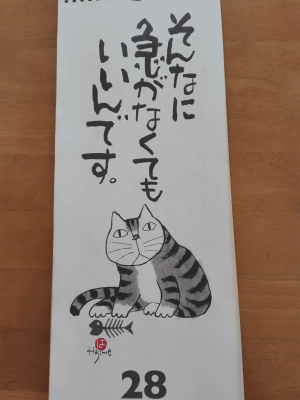 そんなに
急がなくても
いいんです。
は
Hajime
28